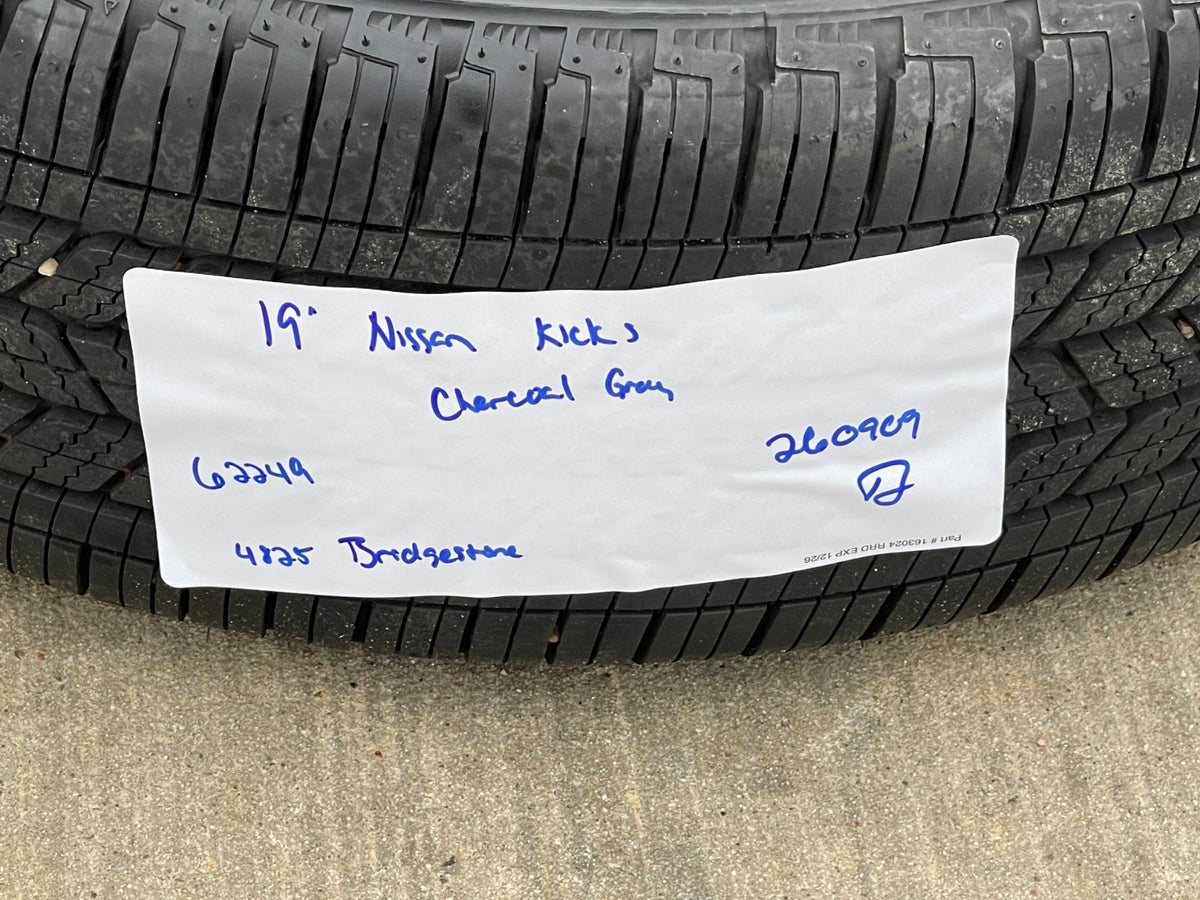 19" Nissan Kicks
Charcoal Gray
62249
260909
4825 Bridgestone
Part # 163024 RRD EXP 12/26